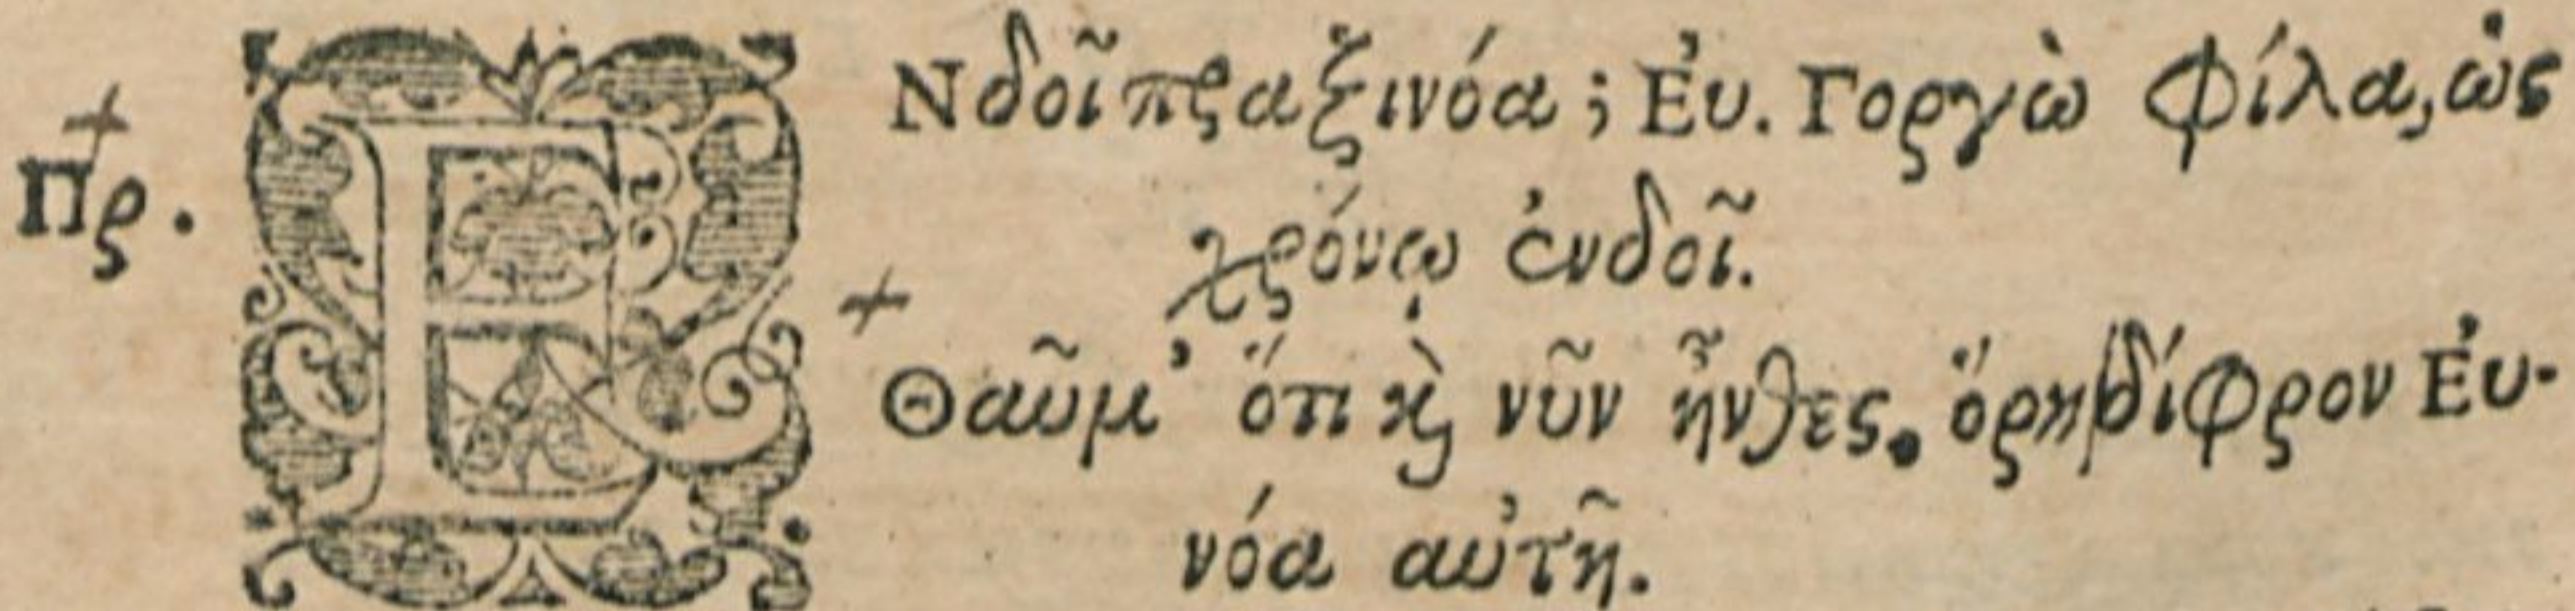 Πρ. ΕΝδοῖ πραξινόα; Ἐυ. Γοργὼ φίλα, ὡς
χρόνῳ ἐνδοῖ.
Θαῦμ' ὅτι κὶ νῦν ἦνθες. ὅρη δίφρον Ἐυ-
νόα αὐτῆ.